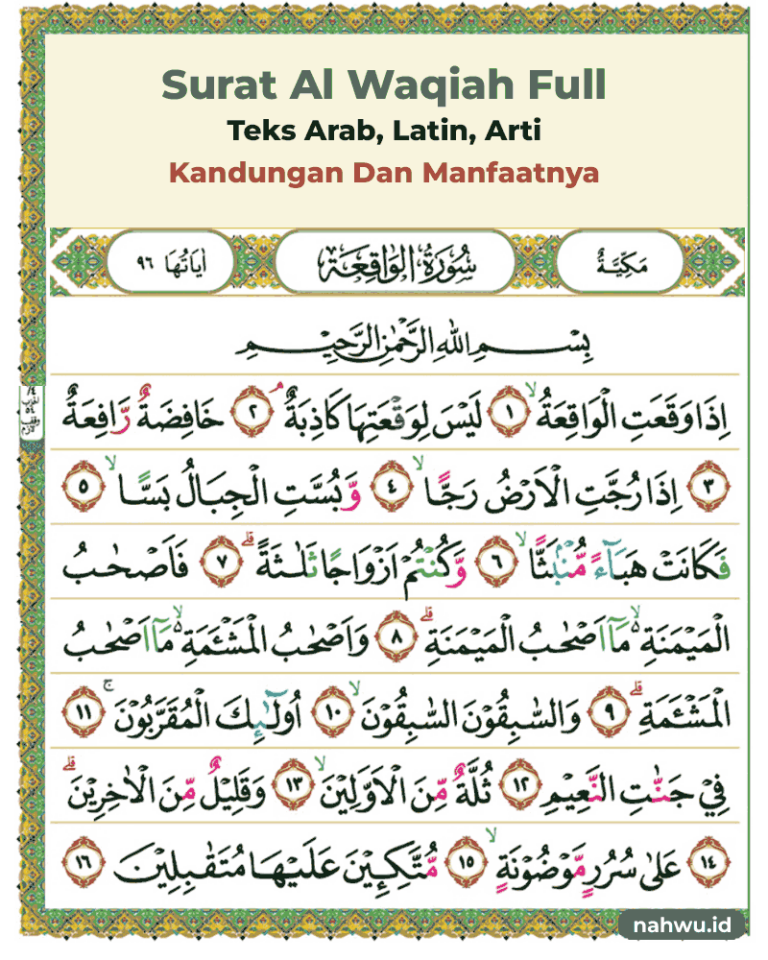 Surat Al Waqiah Full
Teks Arab, Latin, Arti
Kandungan Dan Manfaatnya
مَكِّيَّةٌ سُوْرَةُ الْوَاقِعَةِ اٰيَاتُهَا ٩٦
بِسْمِ اللّٰهِ الرَّحْمٰنِ الرَّحِيْمِ
اِذَا وَقَعَتِ الْوَاقِعَةُۙ ١ لَيْسَ لِوَقْعَتِهَا كَاذِبَةٌۘ ٢ خَافِضَةٌ رَّافِعَةٌ
٣ اِذَا رُجَّتِ الْاَرْضُ رَجًّاۙ ٤ وَّبُسَّتِ الْجِبَالُ بَسًّاۙ ٥
فَكَانَتْ هَبَاۤءً مُّنْۢبَثًّاۙ ٦ وَّكُنْتُمْ اَزْوَاجًا ثَلٰثَةًۗ ٧ فَاَصْحٰبُ
الْمَيْمَنَةِ ەۙ مَآ اَصْحٰبُ الْمَيْمَنَةِۗ ٨ وَاَصْحٰبُ الْمَشْـَٔمَةِ ەۙ مَآ اَصْحٰبُ
الْمَشْـَٔمَةِۗ ٩ وَالسّٰبِقُوْنَ السّٰبِقُوْنَۙ ١٠ اُولٰۤىِٕكَ الْمُقَرَّبُوْنَۚ ١١
فِيْ جَنّٰتِ النَّعِيْمِ ١٢ ثُلَّةٌ مِّنَ الْاَوَّلِيْنَۙ ١٣ وَقَلِيْلٌ مِّنَ الْاٰخِرِيْنَۗ
١٤ عَلٰى سُرُرٍ مَّوْضُوْنَةٍۙ ١٥ مُّتَّكِـِٕيْنَ عَلَيْهَا مُتَقٰبِلِيْنَ ١٦
nahwu.id